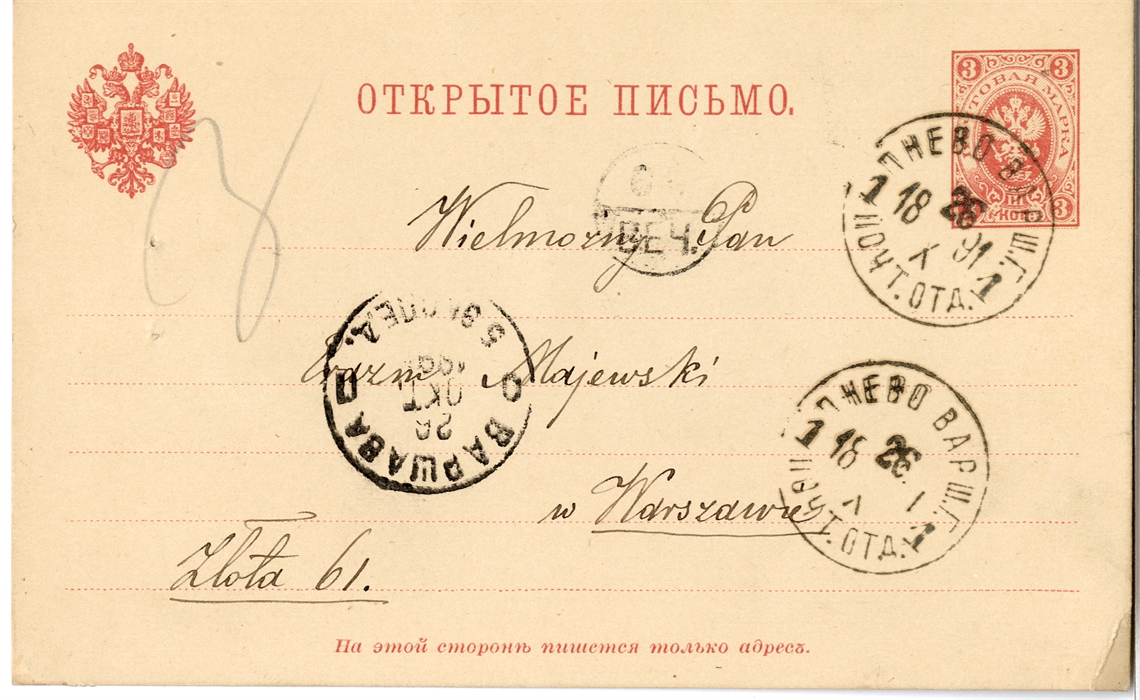 ОТКРЫТОЕ ПИСЬМО.
3 3
ПОЧТОВАЯ МАРКА
3
Wielmożny Pan
ВЕЧ.
Erazm Majewski
w Warszawie
Złota 61.
ВАРШ.Г.
1 18 26 X 91 1
ПОЧТ.ОТД.
ВАРШАВА
26 ОКТ. 1891
ВАРШ.Г.
1 18 26 X 1
ПОЧТ.ОТД.
На этой сторонѣ пишется только адресъ.